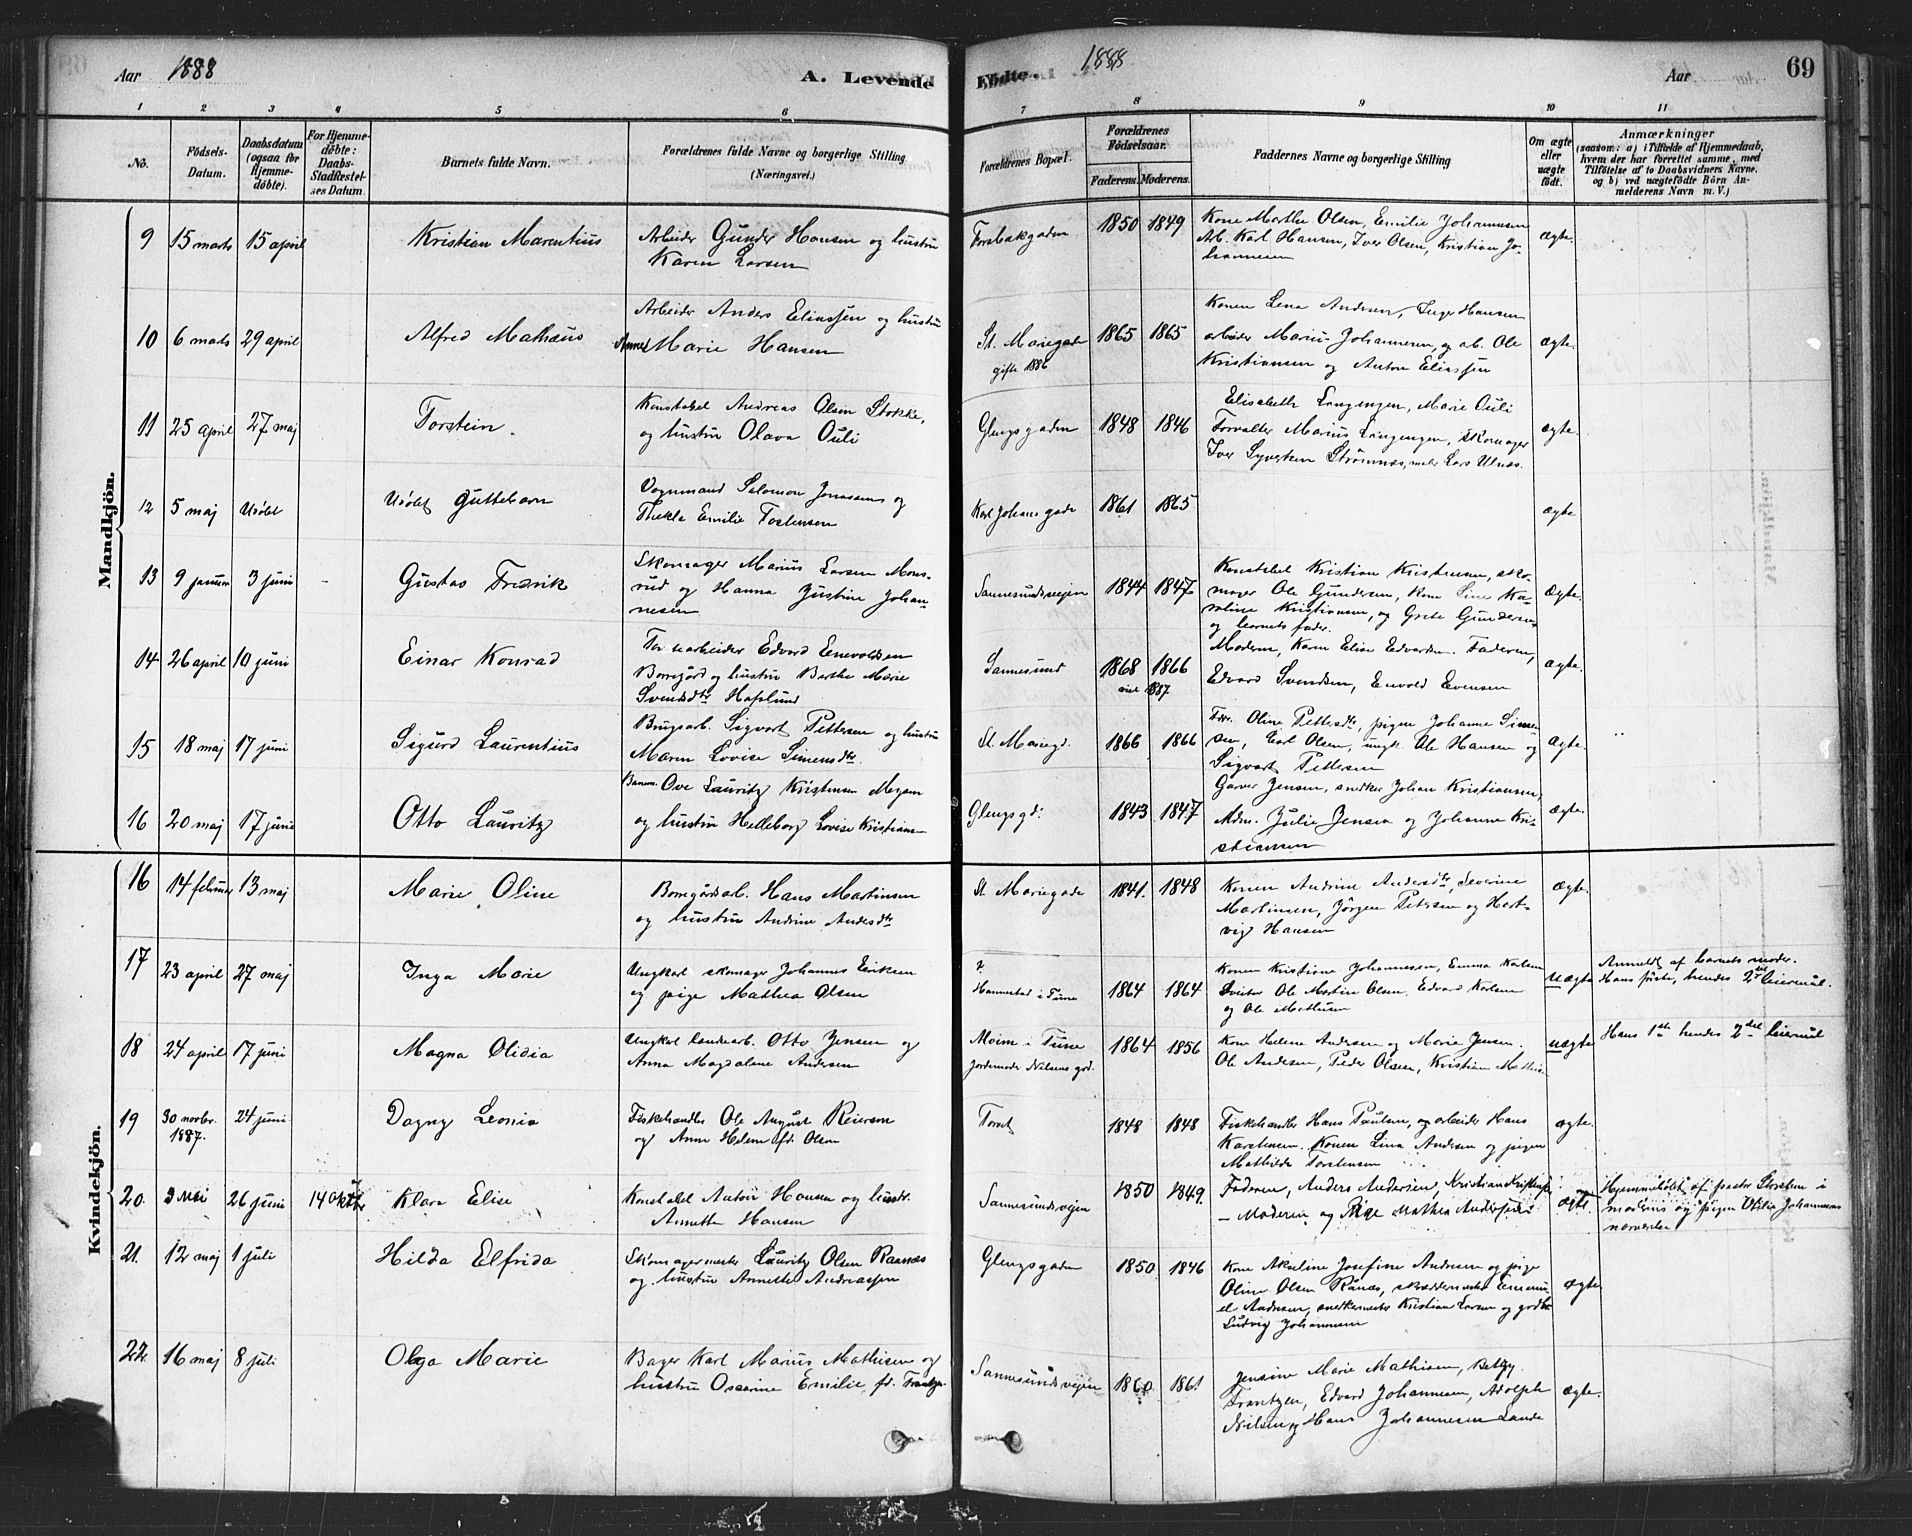 Aar 1888
A. Levende
Fødte.
1888
Aar
69
1 2 3 4 5 6 7 8 9 10 11
No.
Fødsels-
Datum.
Daabsdatum
(ogsaa for
Hjemme-
døbte).
For Hjemme-
døbte:
Daabs-
Stadfæstel-
ses Datum.
Barnets fulde Navn.
Forældrenes fulde Navne og borgerlige Stilling
(Næringsvei.)
Forældrenes Bopæl.
Forældrenes
Fødselsaar.
Faderens. Moderens.
Faddernes Navne og borgerlige Stilling
Om ægte
eller
uægte
født.
Anmærkninger
(saasom: a) i Tilfælde af Hjemmedaab,
hvem der har forrettet samme, med
Tilføielse af to Daabsvidners Navne,
og b) ved uægtefødte Børn An-
melderens Navn m. V.)
Mandkjön.
9 15 marts 15 april Kristian Marentius
Arbeider Gunder Hansen og hustru
Karen Larsen
Forsbakgaden 1850 1849
Kone Marthe Olsen, Emilie Johannesen
Arb. Karl Hansen, Iver Olsen, Kristian Jo-
hannesen
ægte.
10 6 marts 29 april Alfred Mathæus
Arbeider Anders Eliassen og hustru
Anne Marie Hansen
St. Mariegade 1865 1865
gifte 1886
Konen Lena Andersen, Inger Hansen
arbeider Marius Johannesen, og ab. Ole
Kristiansen og Anton Eliassen
ægte.
11 25 april 27 maj Torstein.
Konstabel Andreas Olsen Stokke,
og hustru Olava Ouli
Glengsgaden 1848 1846
Elisabeth Langengen, Marie Ouli
Forvalter Marius Langengen, skomager
Iver Syversen Strømnæs, Lars Ulnæs.
ægte.
12 5 maj Udøbt Udøbt Guttebarn
Vognmand Salomon Jonassen og
Thekla Emilie Torstensen
Karl Johans gade 1861 1865
ægte
13 9 januar 3 juni Gustav Fredrik
Skomager Marius Larsen Mons-
rud og Hanna Justine Johan-
nesen
Sannesundsveien 1844 1847
Konstabel Kristian Kristensen, sko-
mager Ole Gundersen, Kone Sine Ka-
roline Kristiansen, og Grete Gundersen
og barnets fader.
ægte.
14 26 april 10 juni Einar Konrad
arbeider Edvard Enevoldsen
Borregård og hustru Berthe Marie
Svendsdtr Hafslund
Sannesund 1868 1866
1887
Moderen, Karen Elise Edvardsen. Faderen,
Edvard Svendsen, Envold Evensen
ægte.
15 18 maj 17 juni Sigurd Laurentius
Brugsarb. Sigvart Pettersen og hustru
Maren Lovise Simensdtr.
St. Mariegd. 1866 1866
Oline Pettersdtr, pigen Johanne Simen-
sen, Carl Olsen, ungk. Ole Hansen og
Sigvart Pettersen
ægte.
16 20 maj 17 juni Otto Lauritz
Banem. Ove Lauritz Kristensen Mogan
og hustru Helleborg Lovise Kristians-
Glengsgd. 1843 1847
Garver Jensen, snedker Johan Kristiansen,
Mdm. Julie Jensen og Johanne Kri-
stiansen
ægte.
Kvindekjön.
16 14 februar 13 maj Marie Oline
Borregårdsarb. Hans Martinsen
og hustru Andrine Andersdtr
St. Mariegade 1841. 1848
Konen Andrine Andersdtr, Severine
Martinsen, Jørgen Petersen og Hart-
vig Hansen
ægte.
17 23 april 27 maj Inga Marie
Ungkarl skomager Johannes Eriksen
og pige Mathea Olsen
Hannestad i Tune 1864 1864
Konen Kristiane Johannesen, Emma Karlsen
Sveiter Ole Martin Olsen, Edvard Karlsen
og Ole Mathisen
uægte
Anmeldt af barnets moder.
Hans første, hendes 2det leiermål.
18 24 april 17 juni Magna Olidia
Ungkarl landarb. Otto Jensen og
Anna Magdalene Andersen
Moum i Tune 1864 1856
Jordemoder Nilsens gd.
Kone Helene Andersen og Marie Jensen.
Ole Andersen, Peder Olsen, Kristian Mathise
uægte
Hans 1ste hendes 2det leiermål
19 30 novbr. 24 juni Dagny Leonia
1887.
Fiskehandler Ole August Reiersen
og Anne Helene fd. Olsen
Torvet 1848 1848
Fiskehandler Hans Paulsen, og arbeider Hans
Karelensen. Konen Lina Andersen og pigen
Mathilde Torstensen
ægte.
20. 3 Mai 26 juni 14 oktbr Klara Elise
Konstabel Anton Hansen og hustr.
Annette Hansen
Sannesundsveien 1850 1849.
Faderen, Anders Andersen, Kristian Kristiansen
— Moderen og Pige Mathea Andersen
ægte.
Hjemmedøbt af pastor Støren i
moderens og pigen Otilie Johannesens
nærværelse
21. 12 maj 1 juli Hilda Elfrida
Skomagermester Lauritz Olsen Raanæs
og hustru Annette Andreassen
Glengsgaden 1850 1846
Kone Akseline Josefine Andersen og pige
Oline Olsen Rånæs, skræddermester Emanu-
el Andersen, snedkermester Kristian Larsen og
Ludvig Johannesen
ægte.
22 16 maj 8 juli Olga Marie
Bager Karl Marius Mathisen og
hustru Oscarine Emilie, fd. Frantzen
Sannesundsveien 1860 1861
Jensine Marie Mathisen, Betzy
Frantzen, Edvard Johannesen, Adolph
Nilsen, Hans Johannesen Lande
ægte.